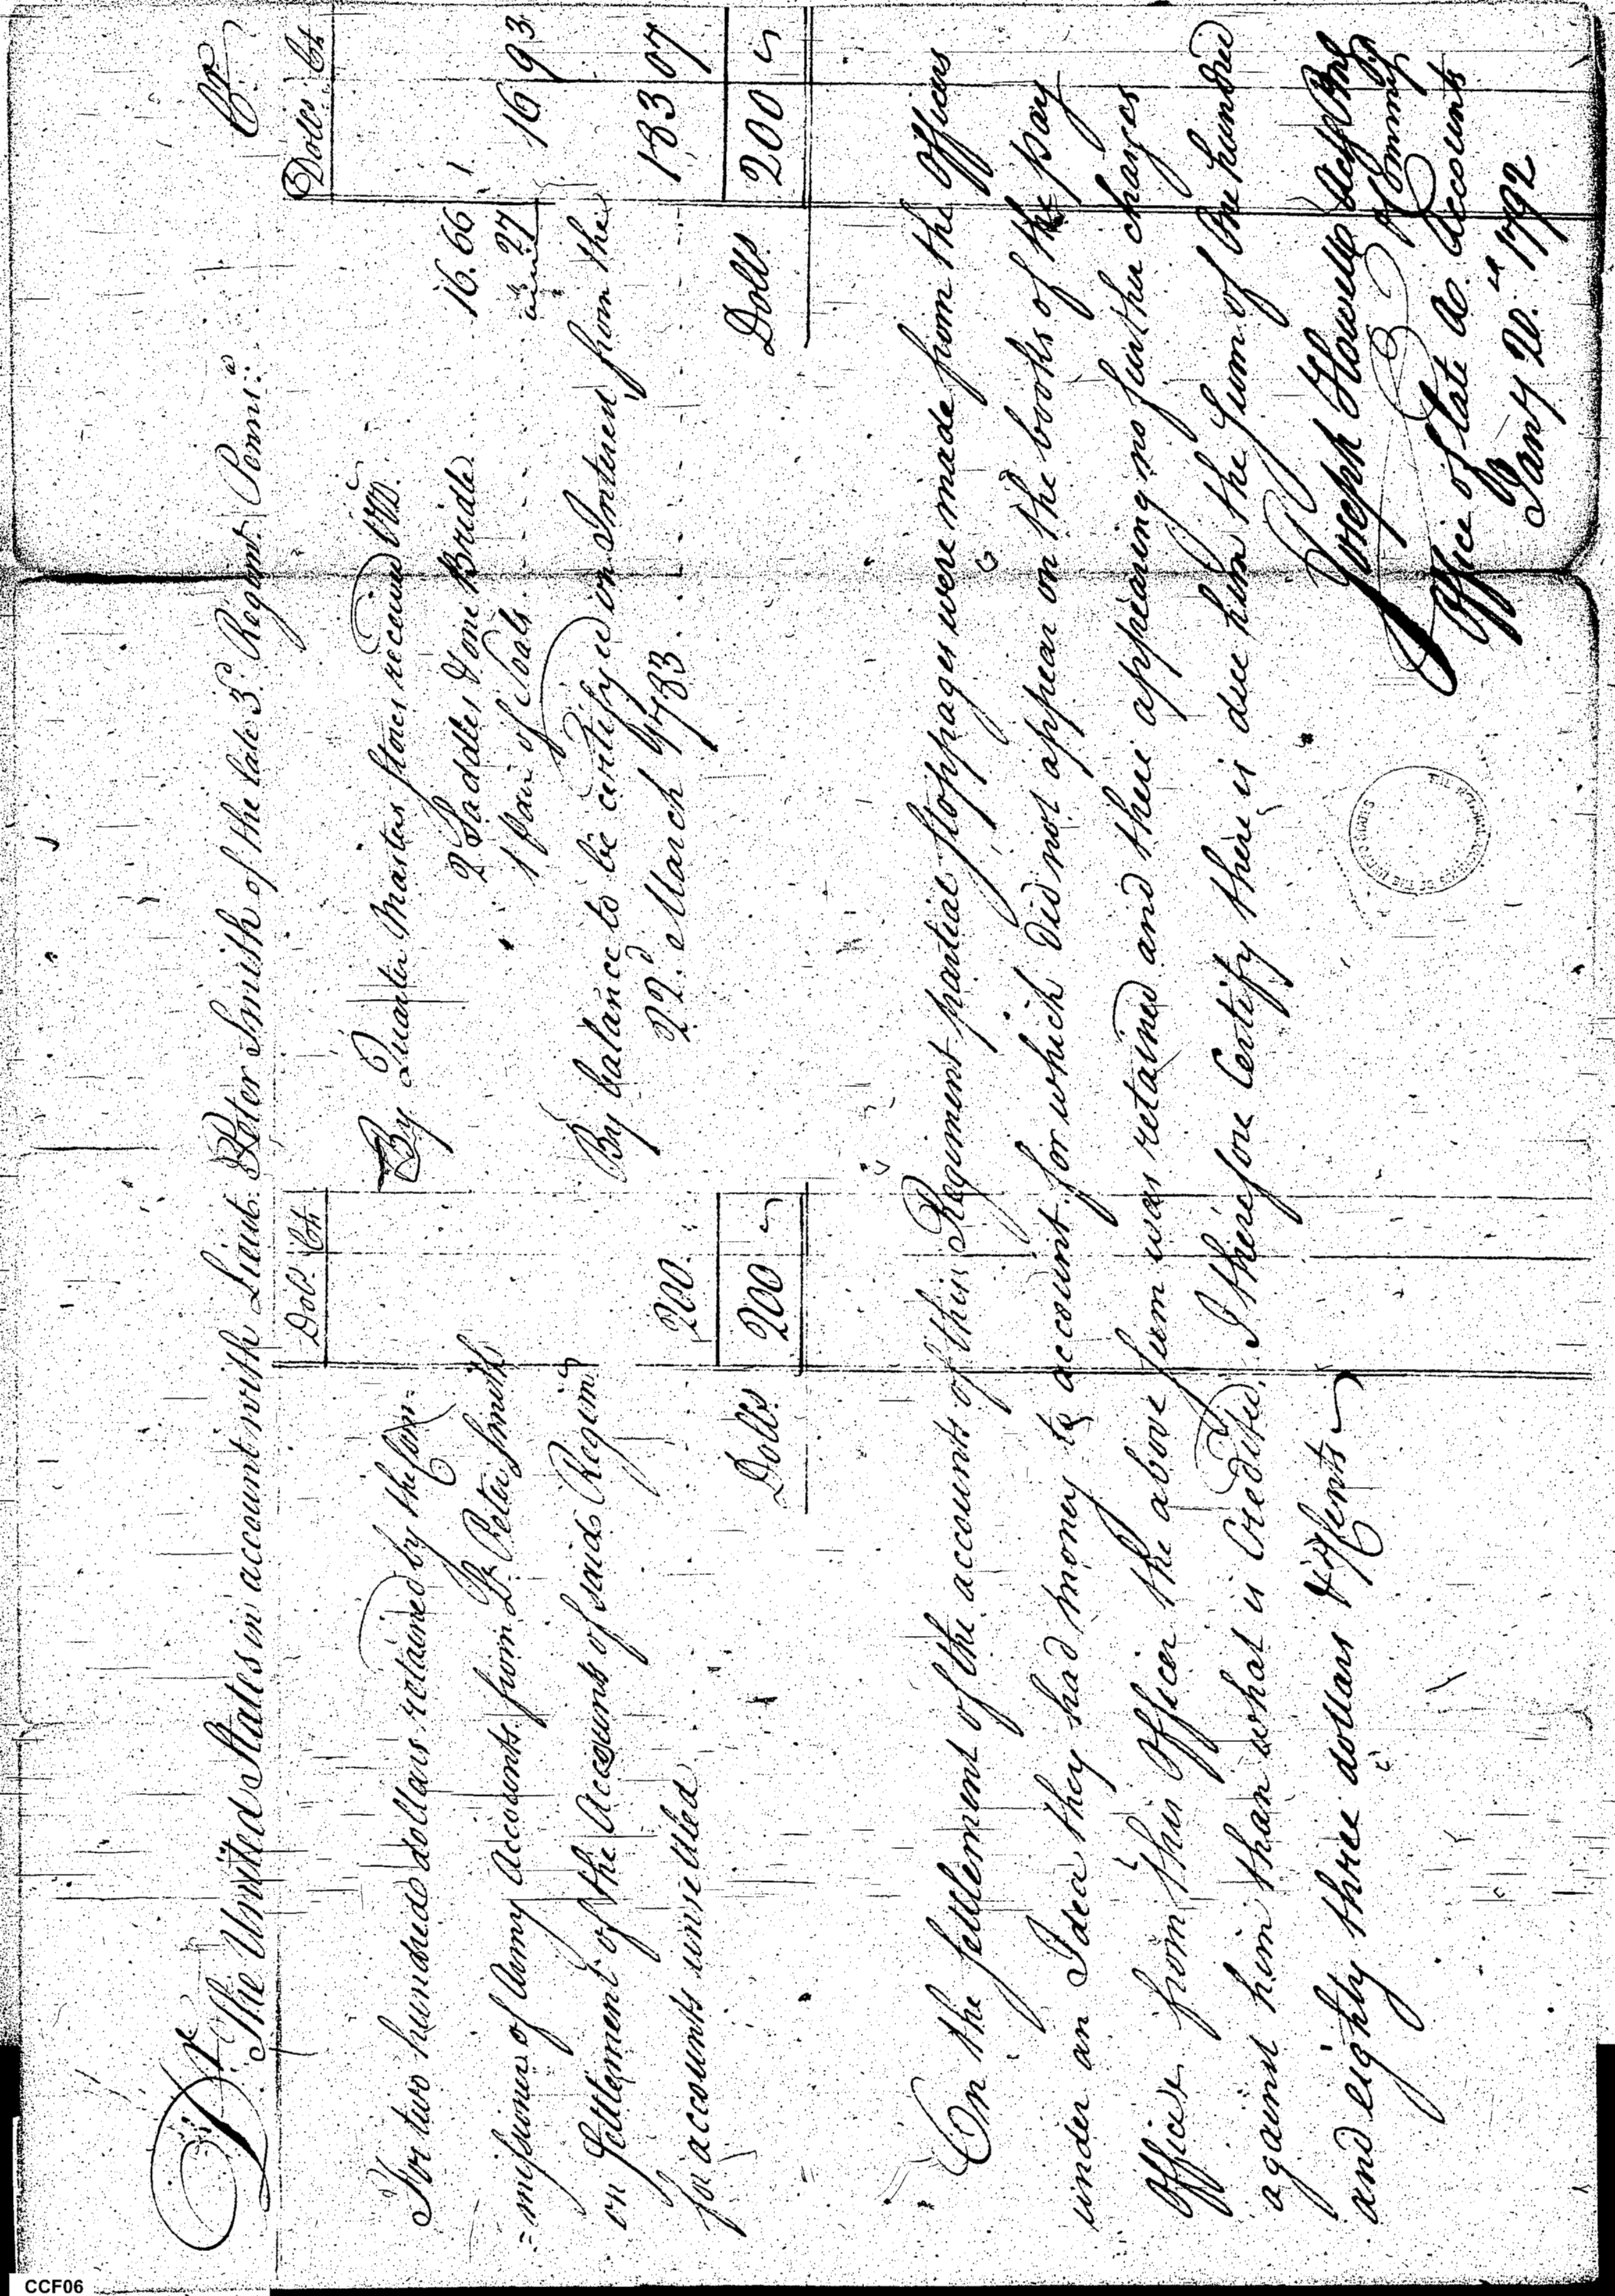 Dr. The United States in account with Lieut. Peter Smith of the late 3d. Regimt. Pennsa. Cr.
Doll. Cts.
Dolls. Cts.
For two hundred dollars retained by the Com=
=missioner of Army Accounts from Lt. Peter Smith
on Settlement of the Accounts of said Regimt.
for accounts unsettled
200.
Dolls. 200
By Quarter Masters Stores received Viz.
2 Saddles & one Bridle 16.66
1 pair of Soals 27
16 93
By balance to be certifyed on Interest from the
22d. March 1783. 183 07
Dolls. 200
On the Settlement of the accounts of this Regiment partial stoppages were made from the Officers
under an Idea they had money to account for which did not appear on the books of the pay
Office. from this Officer the above sum was retained and there appearing no further charges
against him than what is Credited. I therefore Certify there is due him the Sum of One hundred
and eighty three dollars & 7/Cents
Joseph Howell
Office of State Ac. Accounts
Jany 20. 1792
CCF06